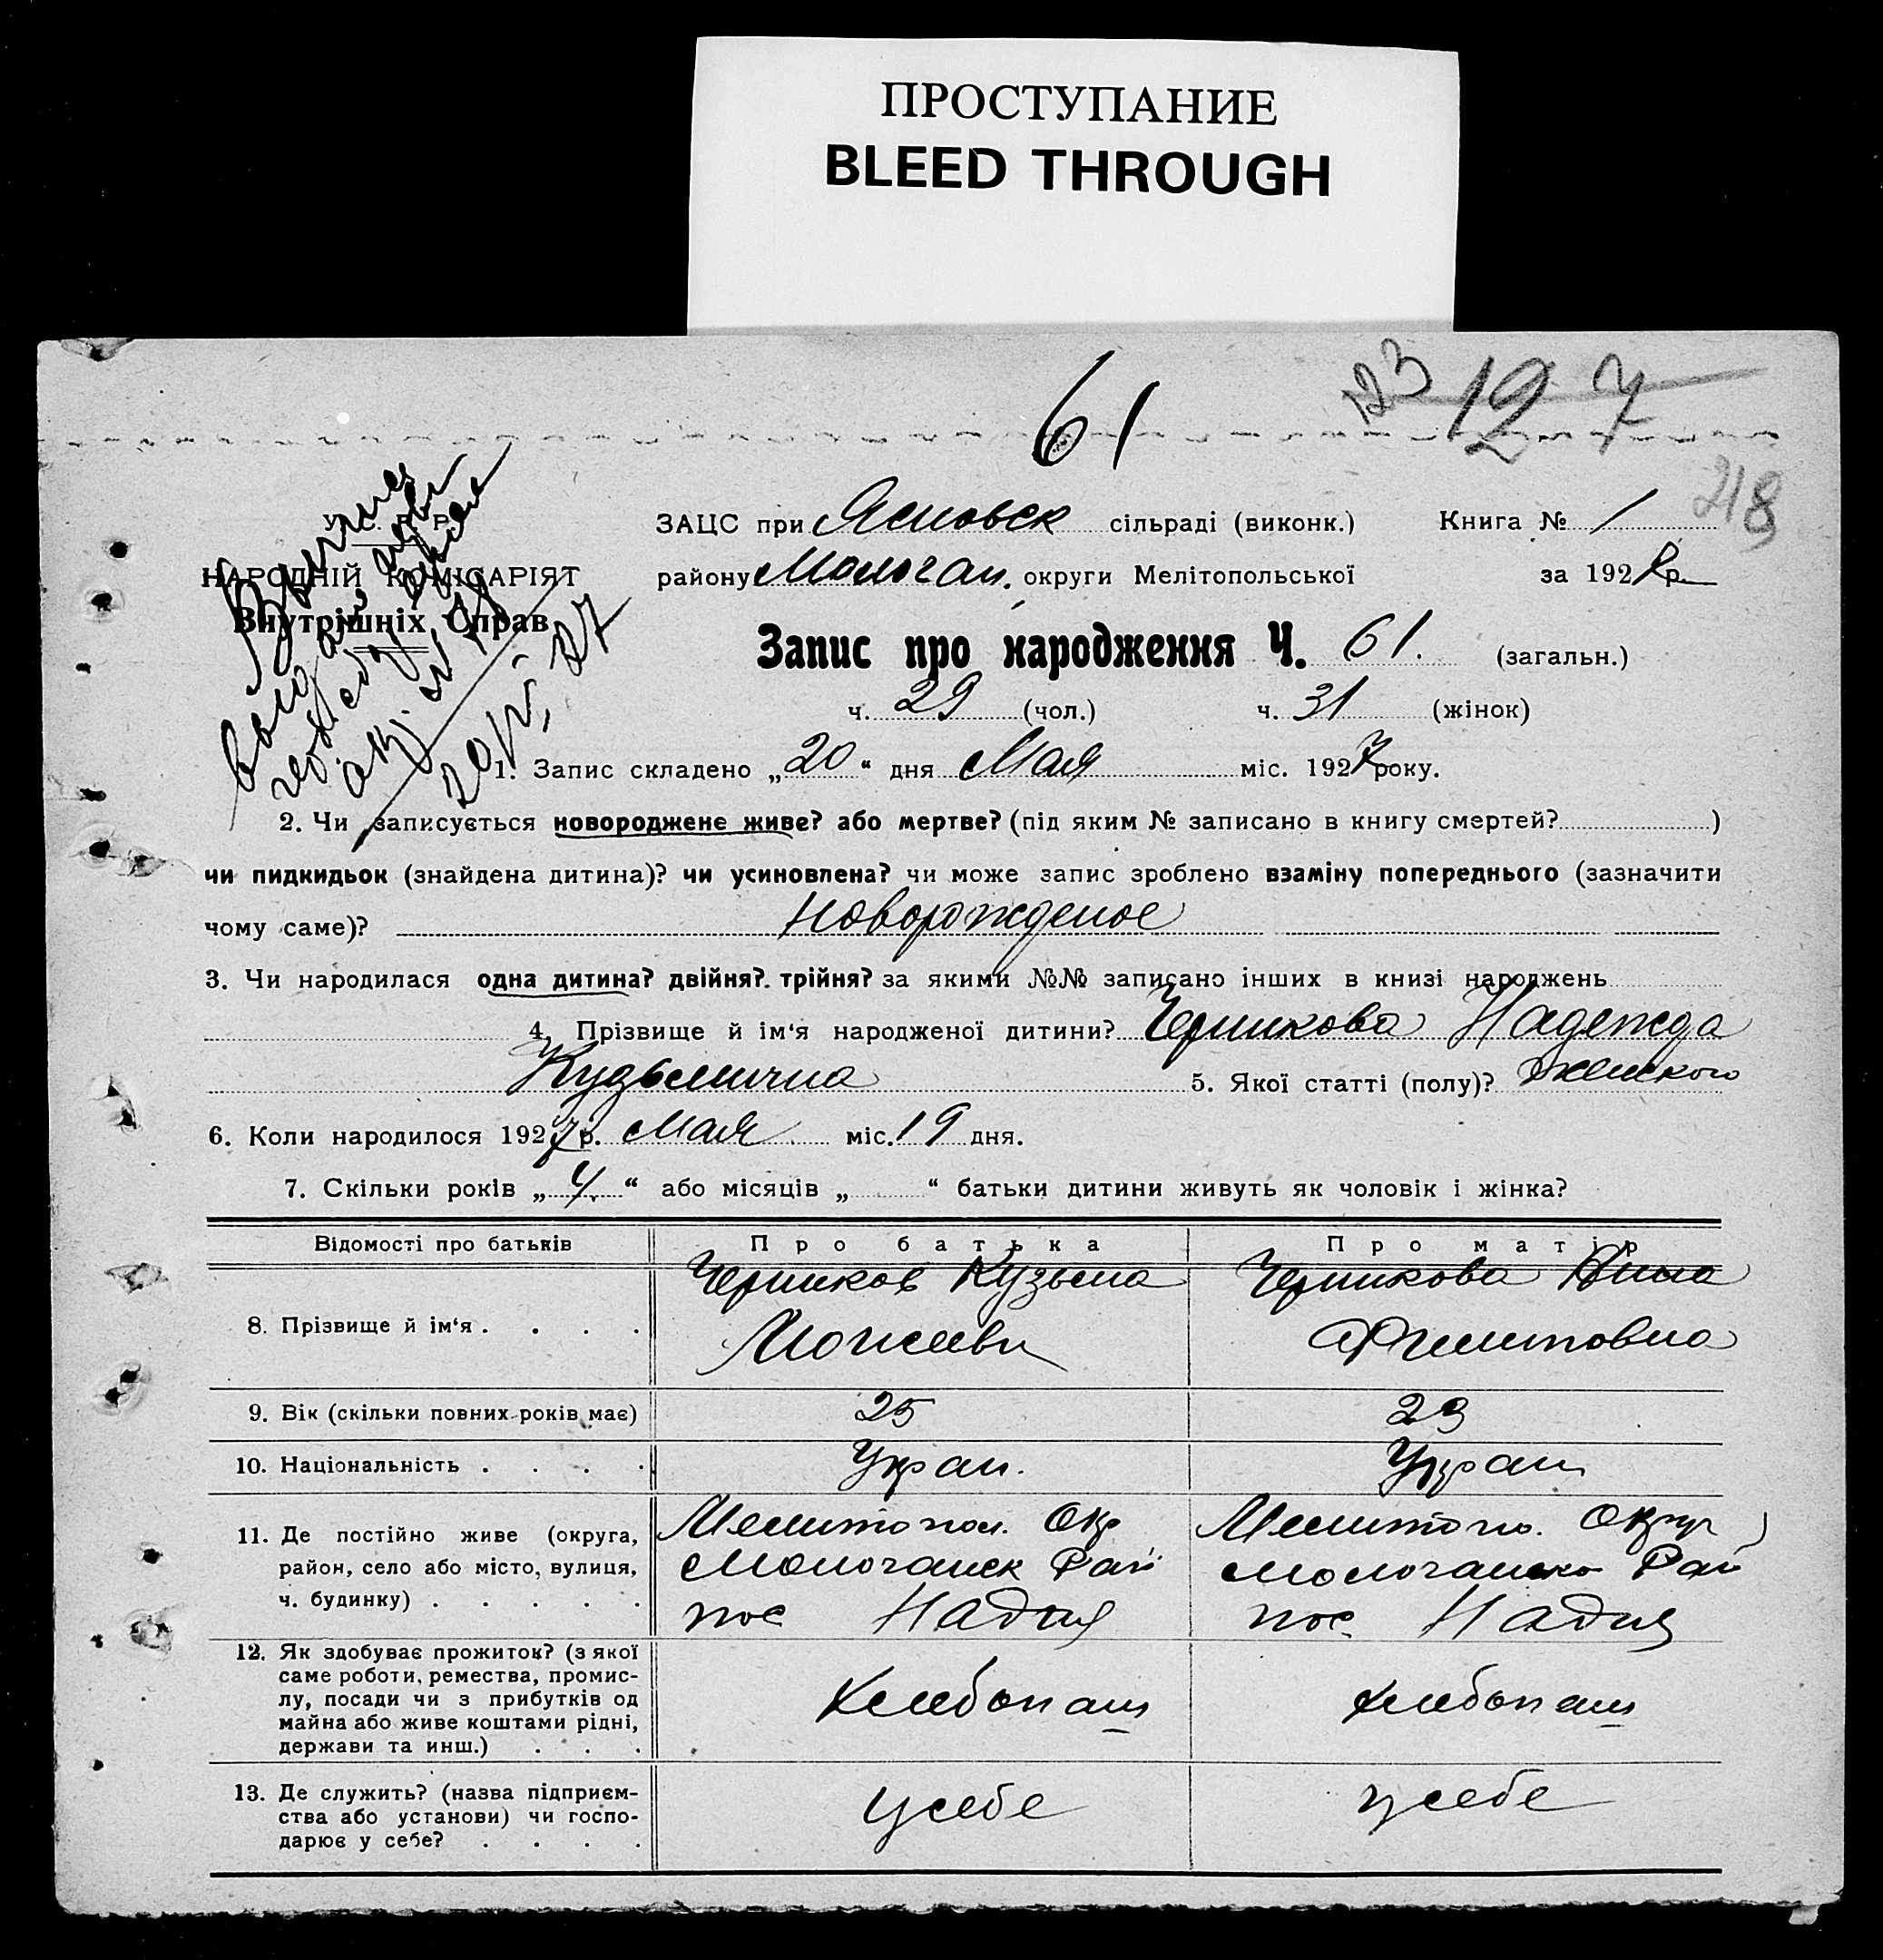 ПРОСТУПАНИЕ
BLEED THROUGH
61
123 127
218
У. С. Р. Р.
НАРОДНІЙ КОМІСАРІЯТ
Внутрішніх Справ
ЗАЦС при Ясновск сільраді (виконк.) Книга № 1
району Молочан. округи Мелітопольської за 192 р.
Запис про народження Ч. 61. (загальн.)
ч. 29 (чол.) ч. 31 (жінок)
1. Запис складено „20“ дня Мая міс. 1927 року.
2. Чи записується новороджене живе? або мертве? (під яким № записано в книгу смертей? )
чи пидкидьок (знайдена дитина)? чи усиновлена? чи може запис зроблено взаміну попереднього (зазначити
чому саме)? Новорожденое
3. Чи народилася одна дитина? двійня? трійня? за якими №№ записано інших в книзі народжень
4. Прізвище й ім‘я народженої дитини? Черникова Надежда
Кузьмична 5. Якої статті (полу)? женского
6. Коли народилося 1927 р. Мая міс. 19 дня.
7. Скільки років „4.“ або місяців „ “ батьки дитини живуть як чоловік і жінка?
Відомості про батьків Про батька Про матір
8. Прізвище й ім‘я . . . . Черников Кузьма Черникова Анна
9. Вік (скільки повних років має) 25 23
10. Національність . . . . Украи. Украи
11. Де постійно живе (округа, Мелитопол. Окр Мелитопо. Округ
район, село або місто, вулиця, Молочанск Рай Молочанско Рай
ч. будинку) . . . . . пос Надия пос. Надия
12. Як здобуває прожиток? (з якої
саме роботи, ремества, промис-
лу, посади чи з прибутків од Хлебопаш Хлебопаш
майна або живе коштами рідні,
держави та инш.) . . .
13. Де служить? (назва підприєм-
ства або установи) чи госпо- у себе у себе
дарює у себе? . . . .